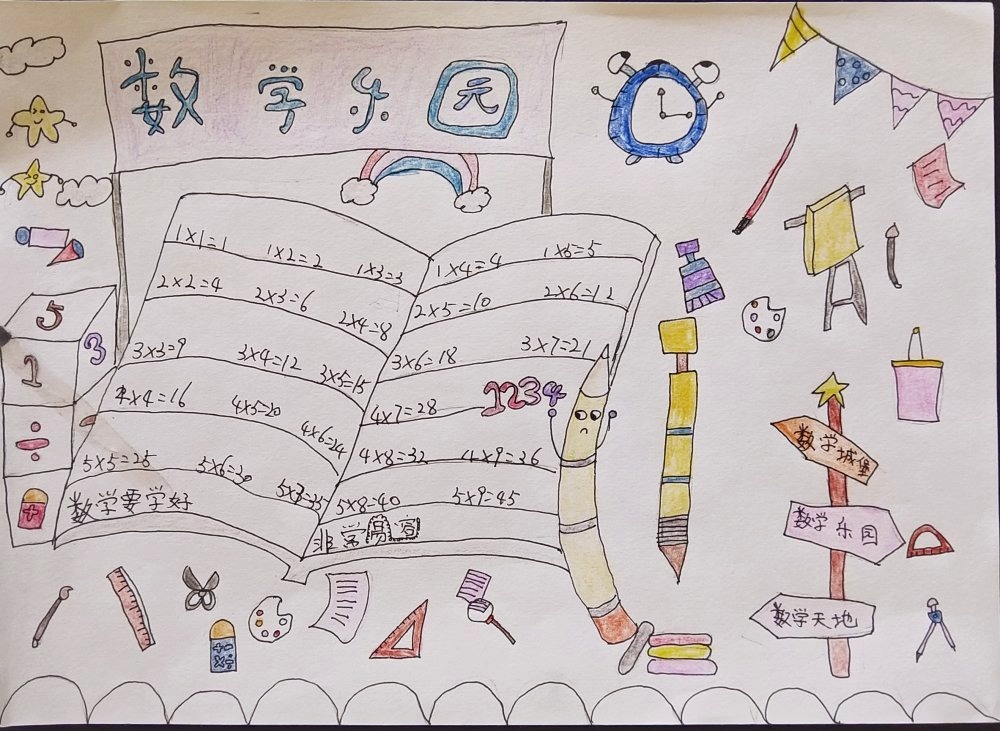 数学乐园
1×1=1 1×2=2 1×3=3
2×2=4 2×3=6 2×4=8
3×3=9 3×4=12 3×5=15
4×4=16 4×5=20 4×6=24
5×5=25 5×6=30
数学要学好
1×4=4 1×5=5
2×5=10 2×6=12
3×6=18 3×7=21
4×7=28
4×8=32 4×9=36
5×8=40 5×9=45
非学易容
1234
5
1
3
÷
+
+-
×÷
数学城堡
数学乐园
数学天地